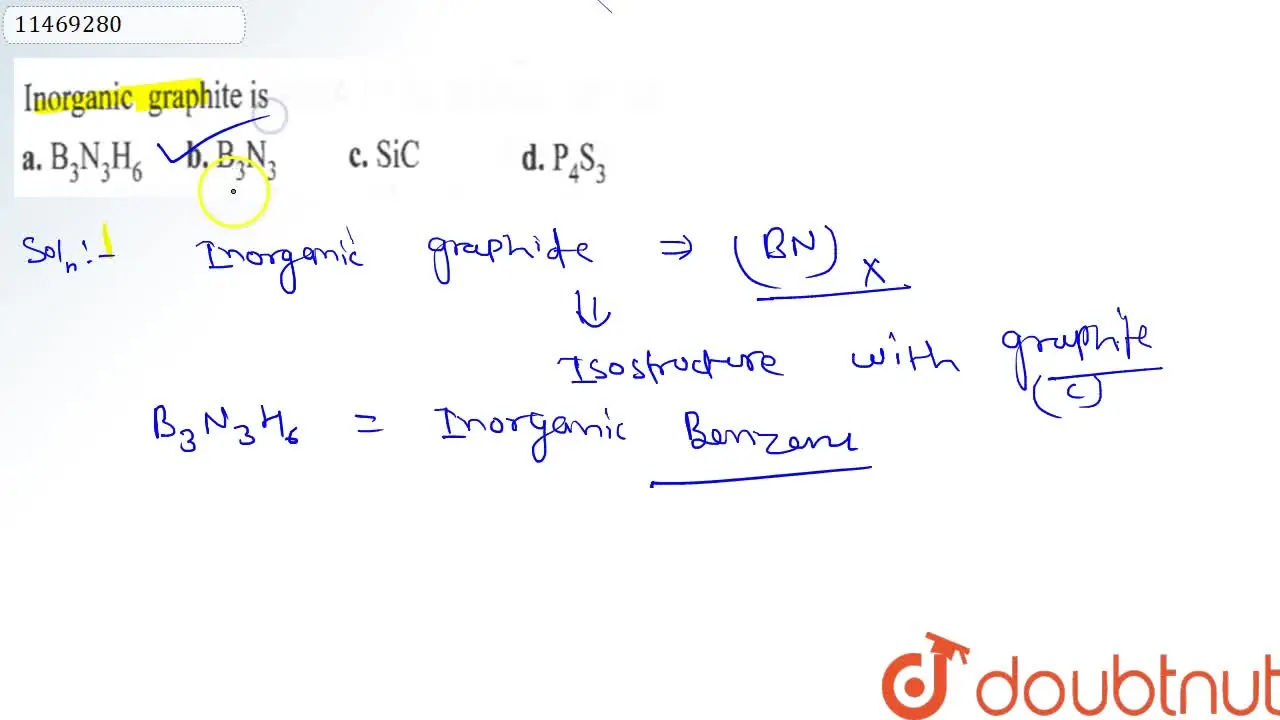 11469280
Inorganic graphite is
a. B₃N₃H₆ b. B₃N₃ c. SiC d. P₄S₃
Solₙ:- Inorganic graphide ⇒ (BN)ₓ
⇓
Isostructure with graphite
(C)
B₃N₃H₆ = Inorganic Benzene
doubtnut